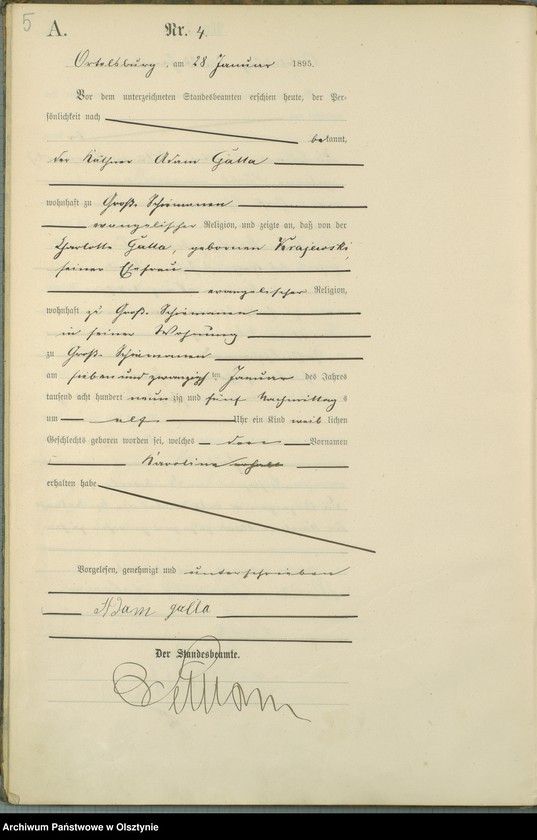 5
A. Nr. 4.
Ortelsburg, am 28 Januar 1895.
Vor dem unterzeichneten Standesbeamten erschien heute, der Per-
sönlichkeit nach
bekannt,
der Käthner Adam Galla
wohnhaft zu Groß Schiemanen
evangelischer Religion, und zeigte an, daß von der
Charlotte Galla, geborenen Krajewski,
seiner Ehefrau
evangelischer Religion,
wohnhaft zu Groß Schiemanen
in seiner Wohnung
zu Groß Schiemanen
am sieben und zwanzigsten Januar des Jahres
tausend acht hundert neunzig und fünf Nachmittags
um elf Uhr ein Kind weiblichen
Geschlechts geboren worden sei, welches den Vornamen
Karoline
erhalten habe
Vorgelesen, genehmigt und unterschrieben
Adam galla
Der Standesbeamte.
Archiwum Państwowe w Olsztynie